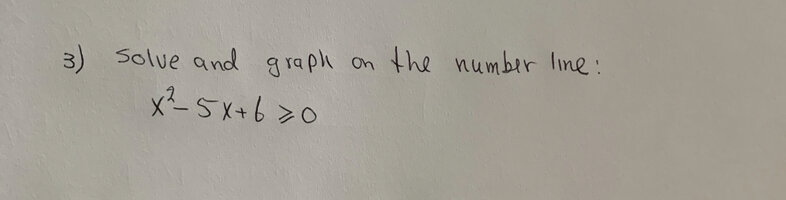 3) solve and graph on the number line:
x²-5x+6⩾0